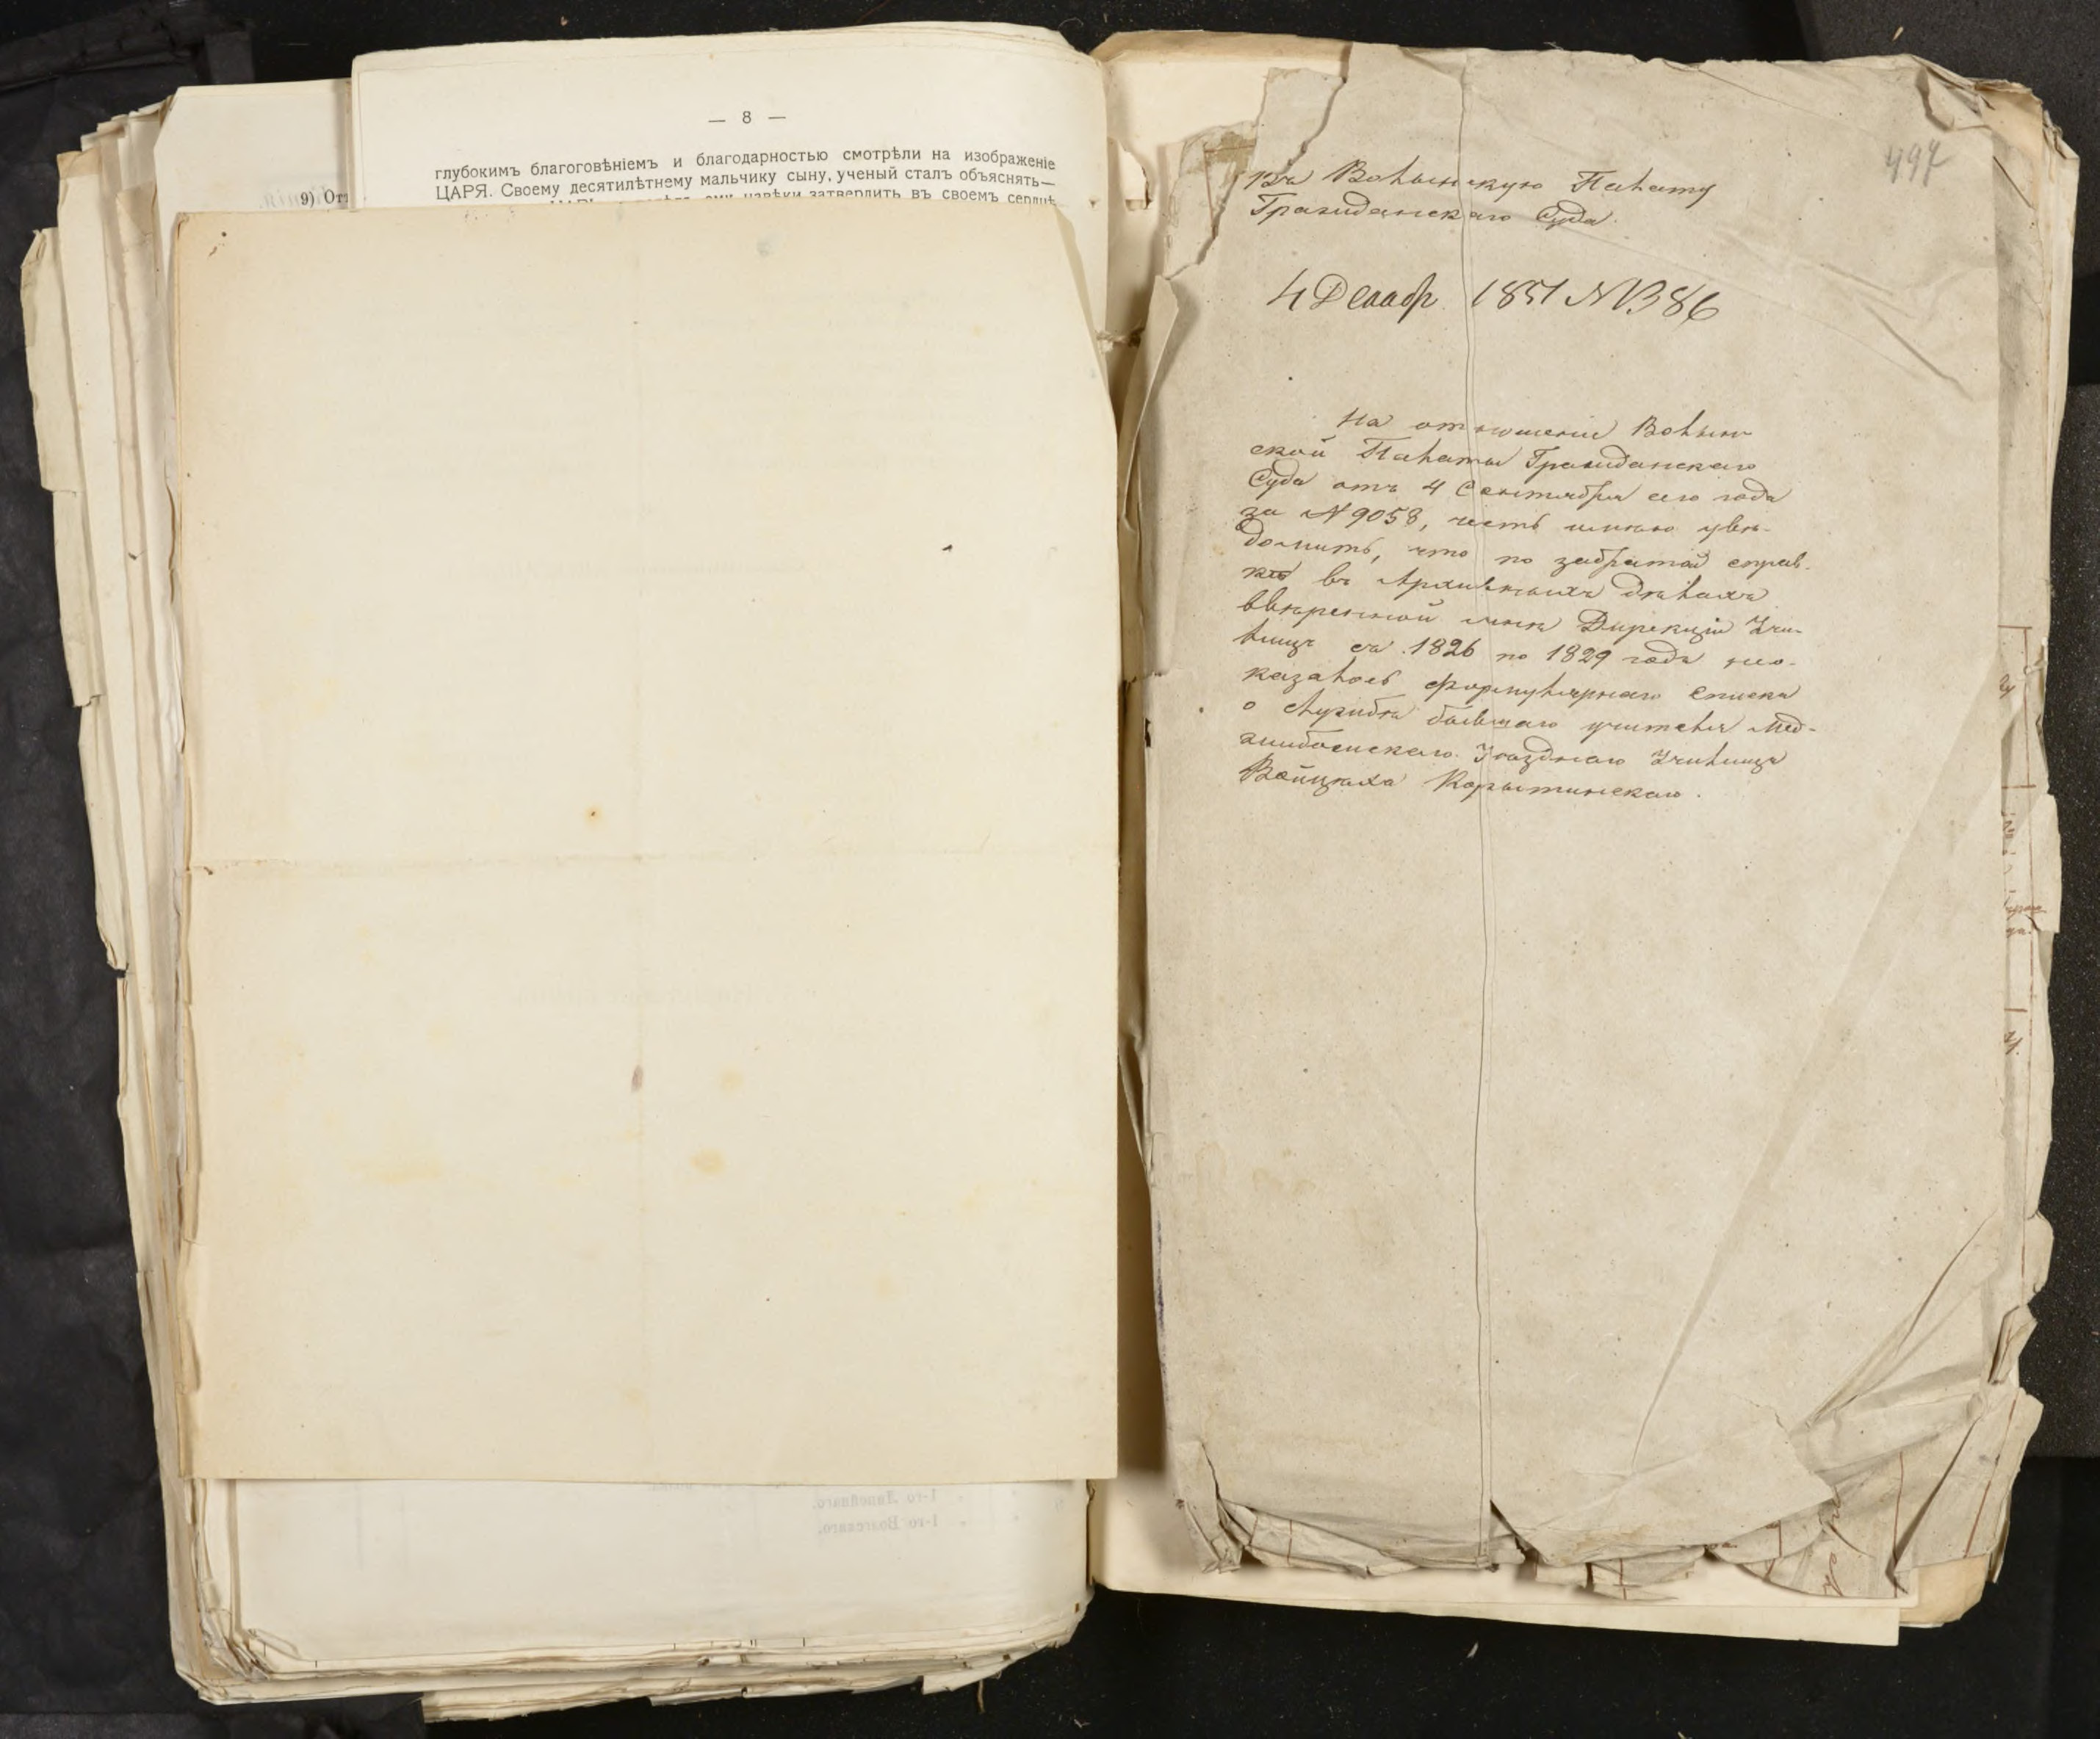 — 8 —
глубокимъ благоговѣніемъ и благодарностью смотрѣли на изображеніе
ЦАРЯ. Своему десятилѣтнему мальчику сыну, ученый сталъ объяснять—
ему навѣки затвердить въ своемъ сердцѣ
9) От
497
Въ Волынскую Палату
Гражданскаго Суда.
4 Декабр 1851 N 1386
На отношеніе Волын
ской Палаты Гражданскаго
Суда отъ 4 Сентября сего года
за N 9058, честь имѣю увѣ-
домить, что по забратой справ-
кѣ въ Архивныхъ дѣлахъ
ввѣренной мнѣ Дирекціи Учи-
лищъ съ 1826 по 1829 годъ не о-
казалось формулярнаго списка
о службѣ бывшаго учителя Мед-
жибожскаго Уѣзднаго Училища
Войцѣха Корытинскаго.
1-го Волжскаго.